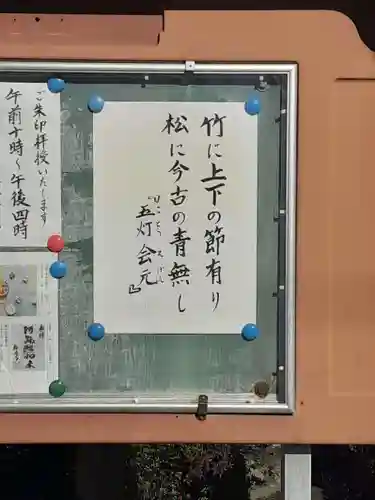 竹に上下の節有り
松に今古の青無し
『五灯会元』
ごとうえげん
ご朱印拝授いたします
午前十時〜午後四時